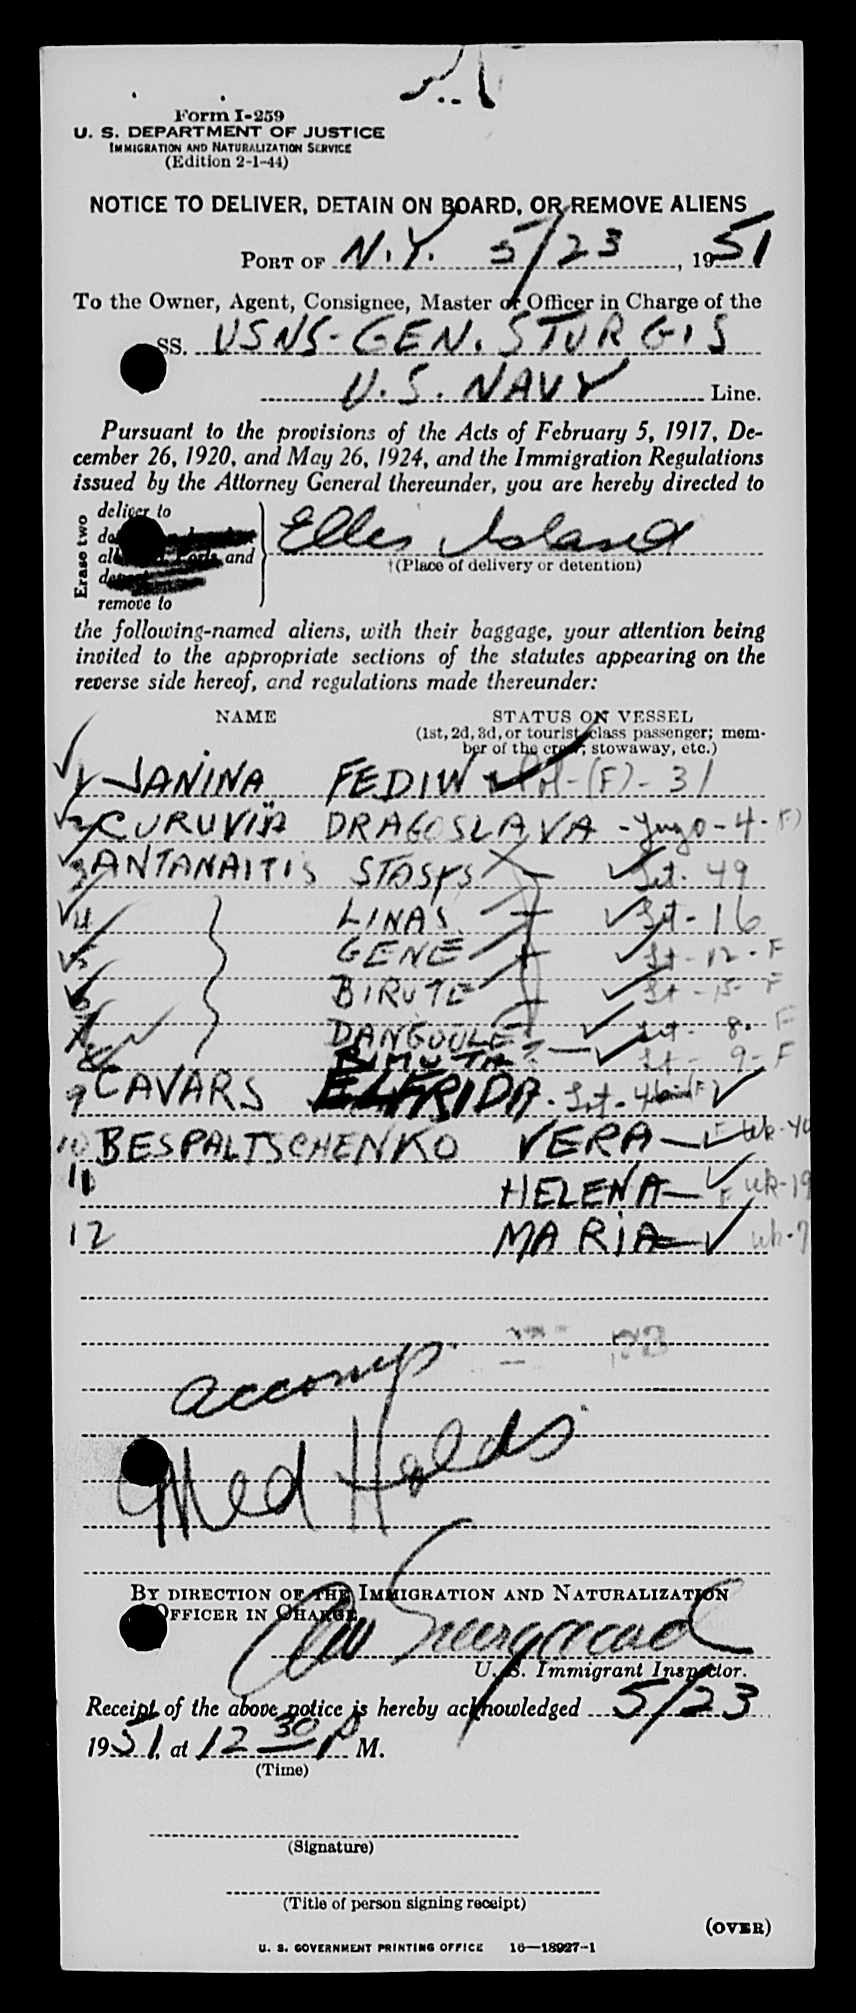 Form I-259
U. S. DEPARTMENT OF JUSTICE
IMMIGRATION AND NATURALIZATION SERVICE
(Edition 2-1-44)
NOTICE TO DELIVER, DETAIN ON BOARD, OR REMOVE ALIENS
PORT OF N.Y. 5/23, 1951
To the Owner, Agent, Consignee, Master or Officer in Charge of the
SS. USNS-GEN. STURGIS
U.S. NAVY Line.
Pursuant to the provisions of the Acts of February 5, 1917, De-
cember 26, 1920, and May 26, 1924, and the Immigration Regulations
issued by the Attorney General thereunder, you are hereby directed to
Erase two
deliver to
and
remove to
Ellis Island
†(Place of delivery or detention)
the following-named aliens, with their baggage, your attention being
invited to the appropriate sections of the statutes appearing on the
reverse side hereof, and regulations made thereunder:
NAME STATUS ON VESSEL
(1st, 2d, 3d, or tourist class passenger; mem-
ber of the crew; stowaway, etc.)
1 JANINA FEDIW Pol-(F)-31
2 CURUVIJA DRAGOSLAVA - Yugo-4-F)
3 ANTANAITIS STASYS - Lit. 49
4 LINAS Lit-16
5 GENE Lit-12-F
6 BIRUTE Lit-15-F
7 DANGUOLE Lit-8-F
8 Lit-9-F
9 CAVARS ELFRIDA - (F)
10 BESPALTSCHENKO VERA - F Uk-40
11 HELENA - F UK-19
12 MARIA - Uk-7
accomp.
Med Holds
BY DIRECTION OF THE IMMIGRATION AND NATURALIZATION
OFFICER IN CHARGE
U. S. Immigrant Inspector.
Receipt of the above notice is hereby acknowledged 5/23
1951, at 12 30 P M.
(Time)
(Signature)
(Title of person signing receipt)
(OVER)
U. S. GOVERNMENT PRINTING OFFICE 16—18927-1